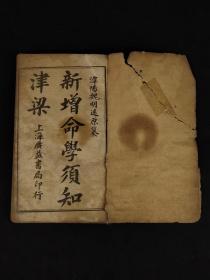 漳陽魏明遠原纂
新增命學須知
津梁
上海廣益書局印行